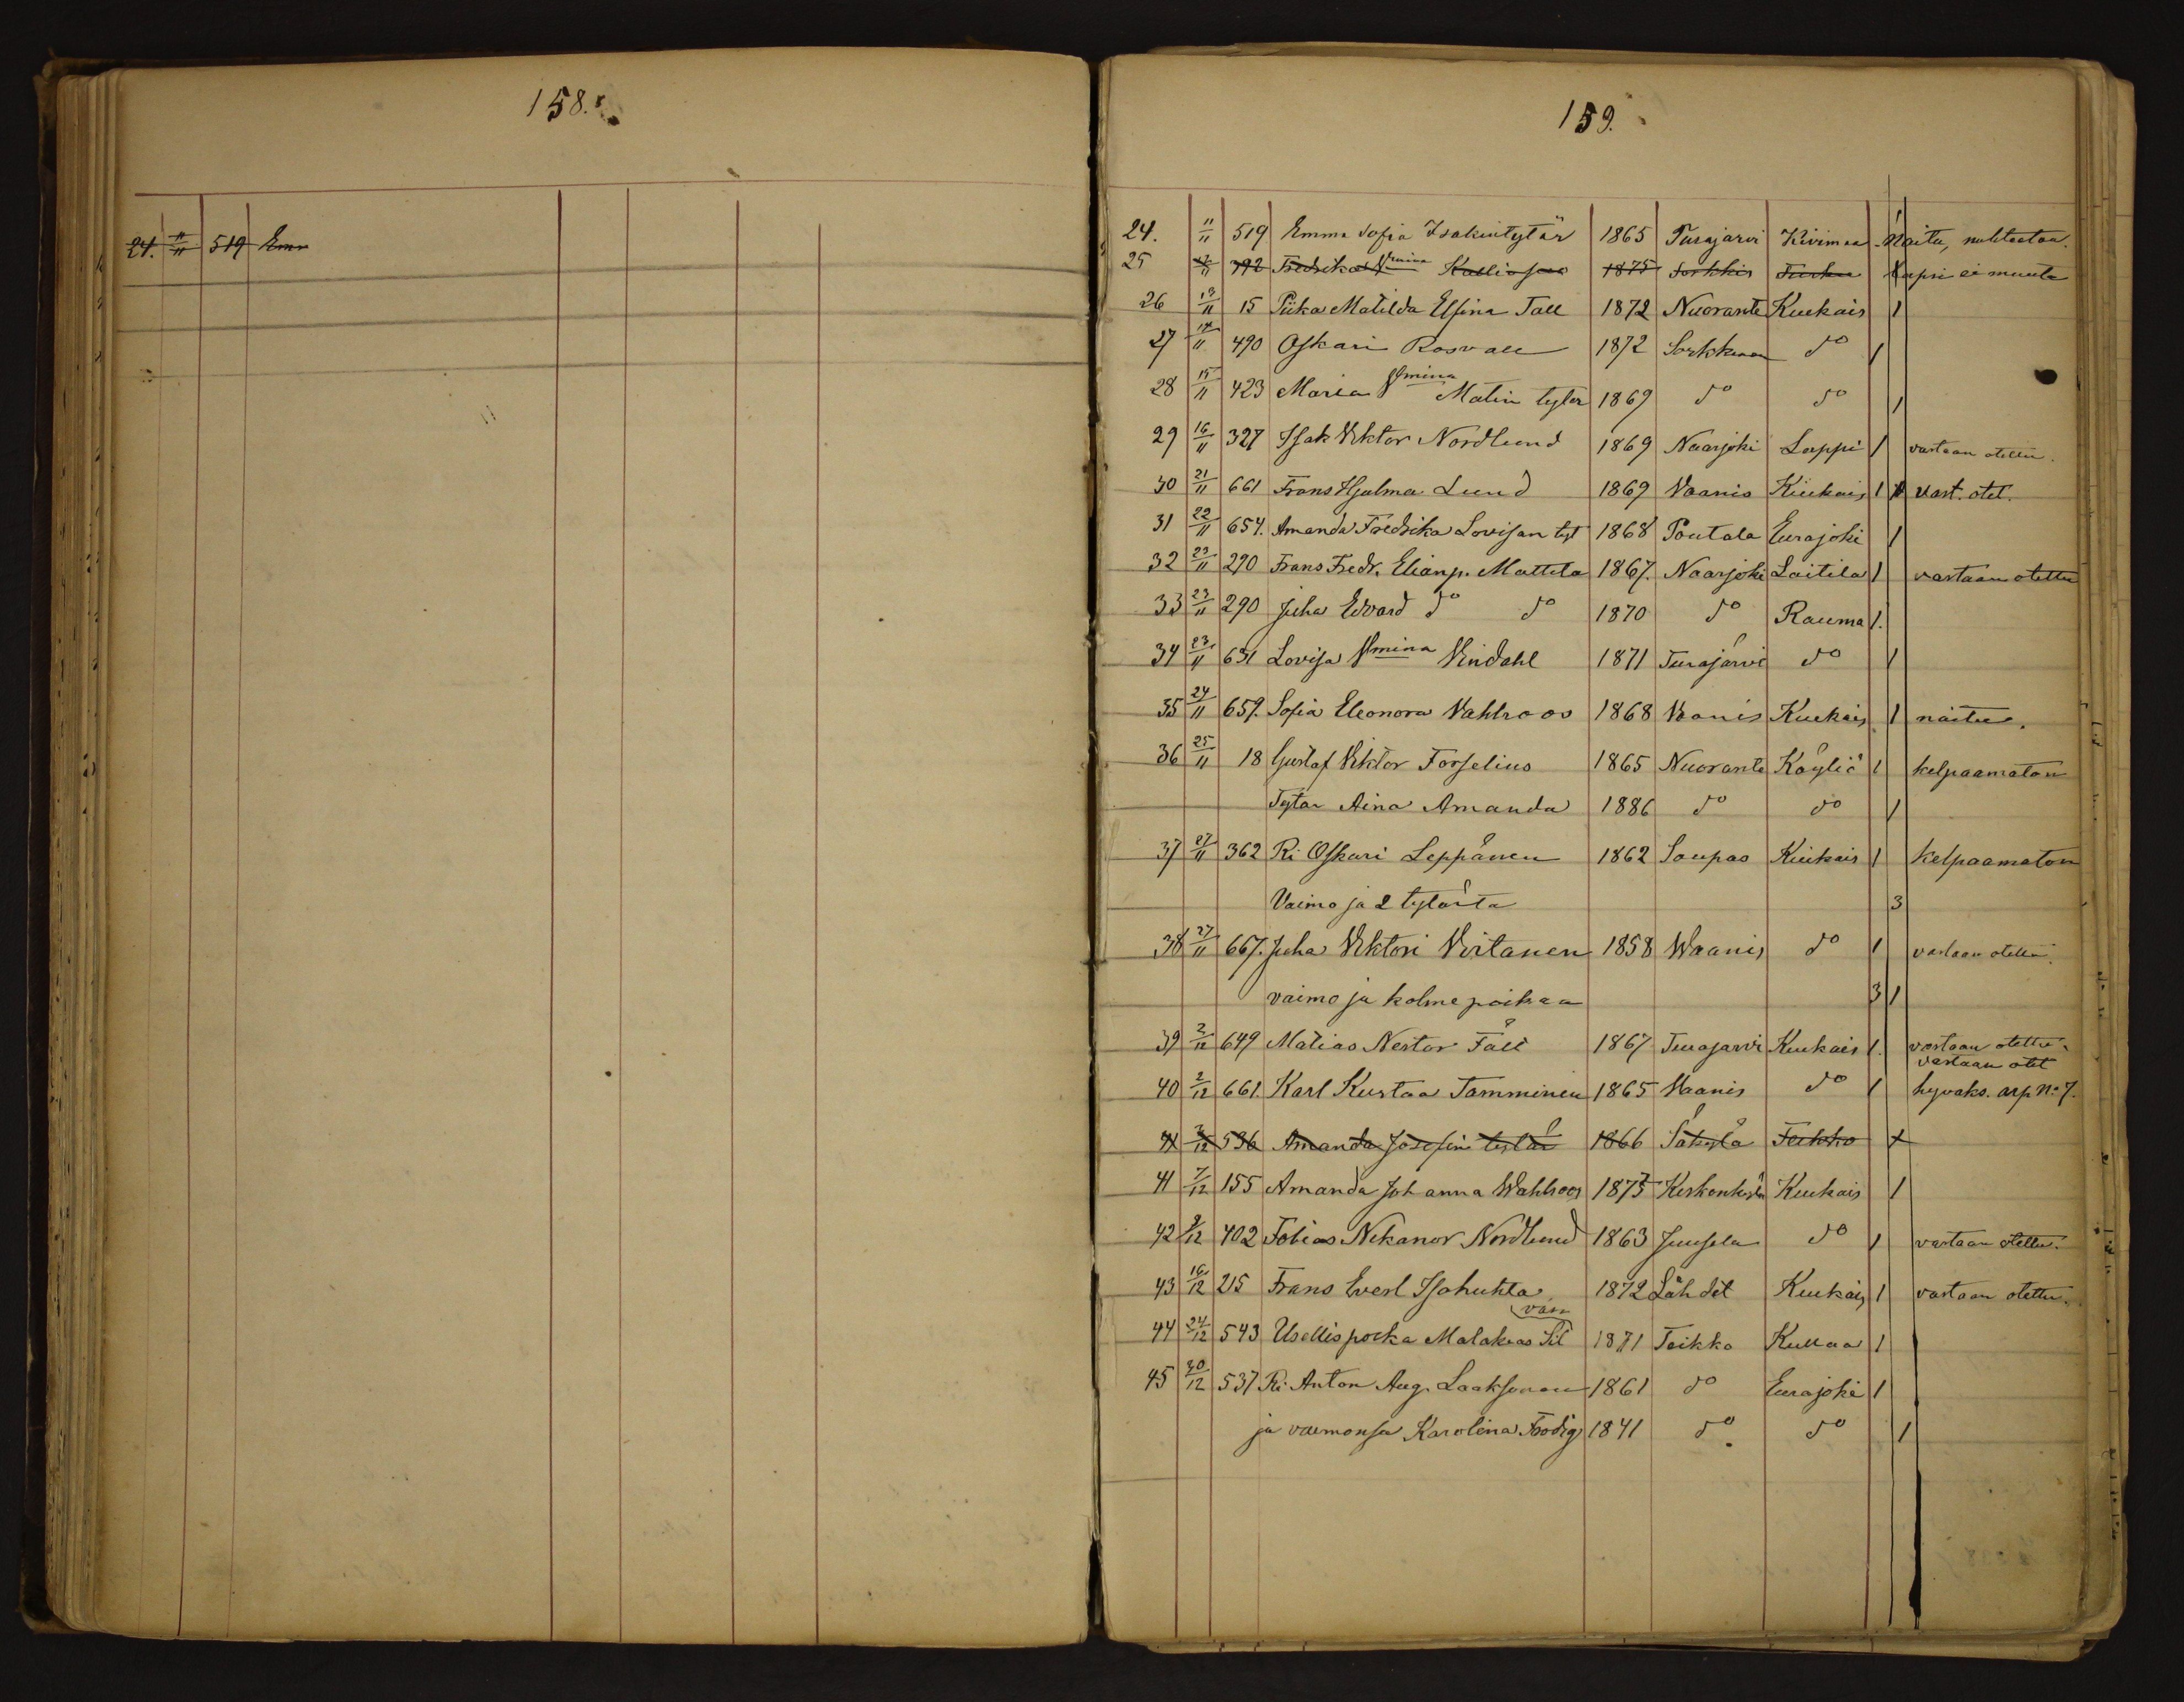 158.
24. 11/11 519 Em
159.
24. 11/11 519 Emma Sofia Isakintytär 1865 Turajärvi Kivimaa 1 Naitu, nuhteeton
25 12/11 792 Fredrika Vmina Kalliosaa 1875 Sorkkis Turku 1 lapsi ei muuta
26 13/11 15 Piika Matilda Elsina Tall 1872 Nuorante Kiukais 1
27 14/11 490 Oskari Rosvall 1872 Sorkkinen do 1
28 15/11 423 Maria Vmina Matin tytär 1869 do do 1
29 16/11 327 Isak Viktor Nordlund 1869 Naarjoki Lappi 1 vastaan otettu.
30 21/11 661 Frans Hjalma Lund 1869 Vaanis Kiukais 1 vast. otet.
31 22/11 654. Amanda Fredrika Lovisan tyt 1868 Poutala Eurajoki 1
32 23/11 290 Frans Fredr. Elianp. Mattila 1867. Naarjoki Laitila 1 vastaan otettu
33 23/11 290 Juha Edvard do do 1870 do Rauma 1.
34 23/11 631 Lovisa Vmina Vindahl 1871 Turajärvi do 1
35 24/11 659. Sofia Eleonora Vahlroos 1868 Vaanis Kiukais 1 naitu.
36 25/11 18 Gustaf Viktor Forselius 1865 Nuorante Köyliö 1 kelpaamaton
Tytär Aina Amanda 1886 do do 1
37 27/11 362 Ri Oskari Leppänen 1862 Soupas Kiukais 1 kelpaamaton
Vaimo ja 2 tytärtä 3
38 27/11 667. Juha Viktori Virtanen 1858 Waanis do 1 vastaan otettu.
vaimo ja kolme poikaa 3 1
39 2/12 649 Matias Nestor Fäll 1867 Turajärvi Kiukais 1. vastaan otettu.
vastaan otet
40 2/12 661. Karl Kustaa Tamminen 1865 Vaanis do 1 hyväks. arp No 7.
41 3/12 536 Amanda Josefin tytär 1866 Säkylä Teikko 1
41 7/12 155 Amanda Johanna Wahlroos 1873 Keskenkylä Kiukais 1
42 9/12 402 Tobias Nikanor Nordlund 1863 Juusela do 1 vastaan otettu.
43 16/12 215 Frans Everl Isohuhta 1872 Lähdet Kiukais 1 vastaan otettu.
vaan
44 24/12 543 Usellispoeka Malakias Sil 1871 Teikko Kullaa 1
45 30/12 537 Ri. Anton Aug. Laaksonen 1861 do Eurajoki 1
ja vaimonsa Karolina Frodig 1841 do. do 1